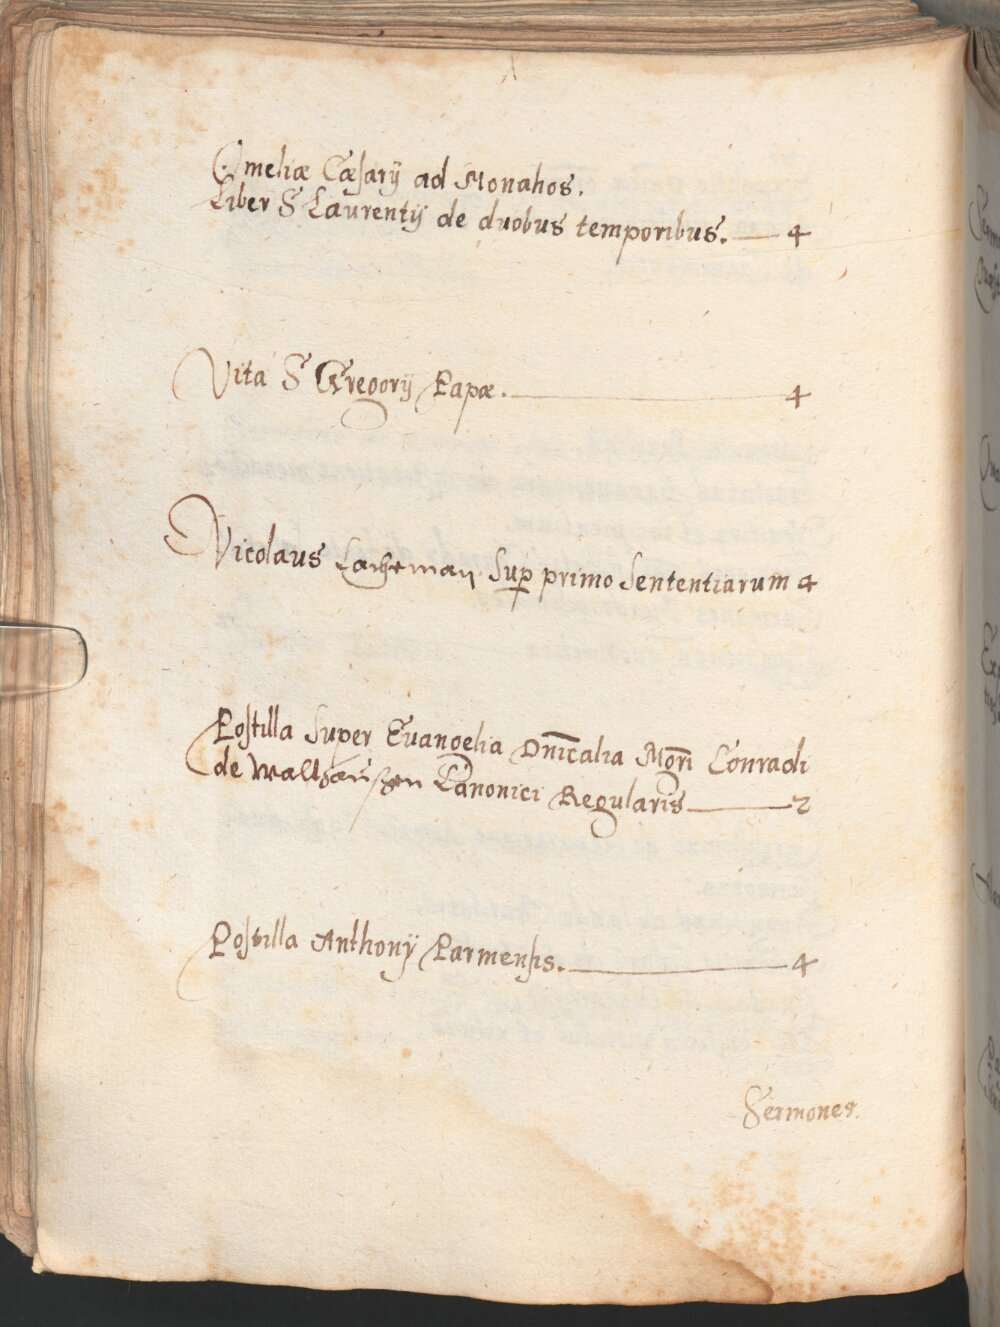 Omeliæ Cæsarÿ ad Monahos.
Liber S Laurentÿ de duobus temporibus. — 4
Vita S Gregorÿ Papæ. — 4
Nicolaus Lacheman Sup primo Sententiarum 4
Postilla Super Euangelia Dnicalia Mgri Conradi
de Walthausen Canonici Regularis — 2
Postilla Anthonÿ Parmensis. — 4
Sermones.